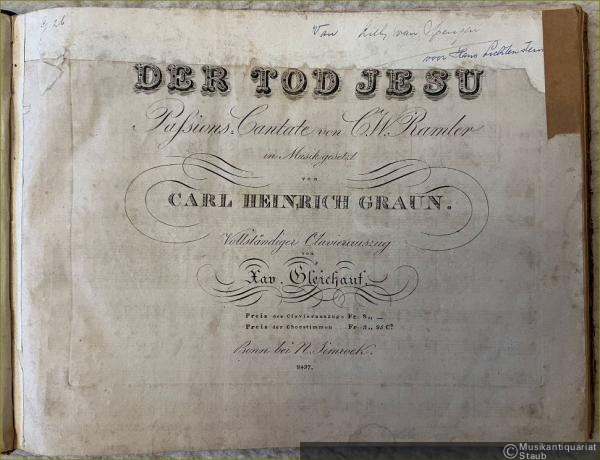 Van Lilly van
voor Hans Lichtenstern
DER TOD JESU
Paſsions-Cantate von C. W. Ramler
in Musik gesetzt
von
CARL HEINRICH GRAUN.
Vollständiger Clavierauszug
von
Xav. Gleichauf.
Preis des Clavierauszugs Fr. 8,, —
Preis der Chorstimmen Fr. 3,, 25 Cs
Bonn bei N. Simrock.
2437.
© Musikantiquariat
Staub